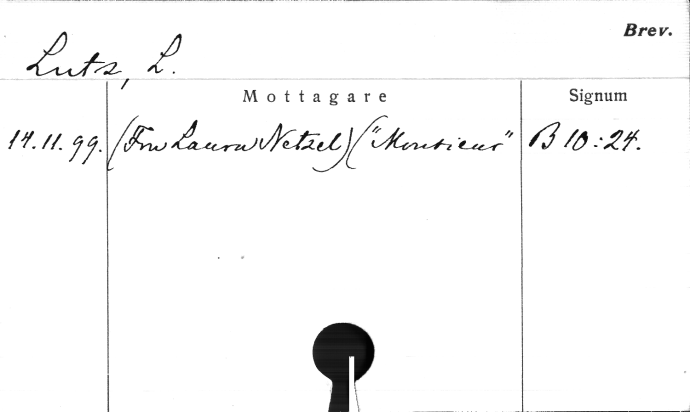 Brev.
Lutz, L.
Mottagare Signum
14.11.99. (Fru Laura Netzel) ("Monsieur" B 10:24.